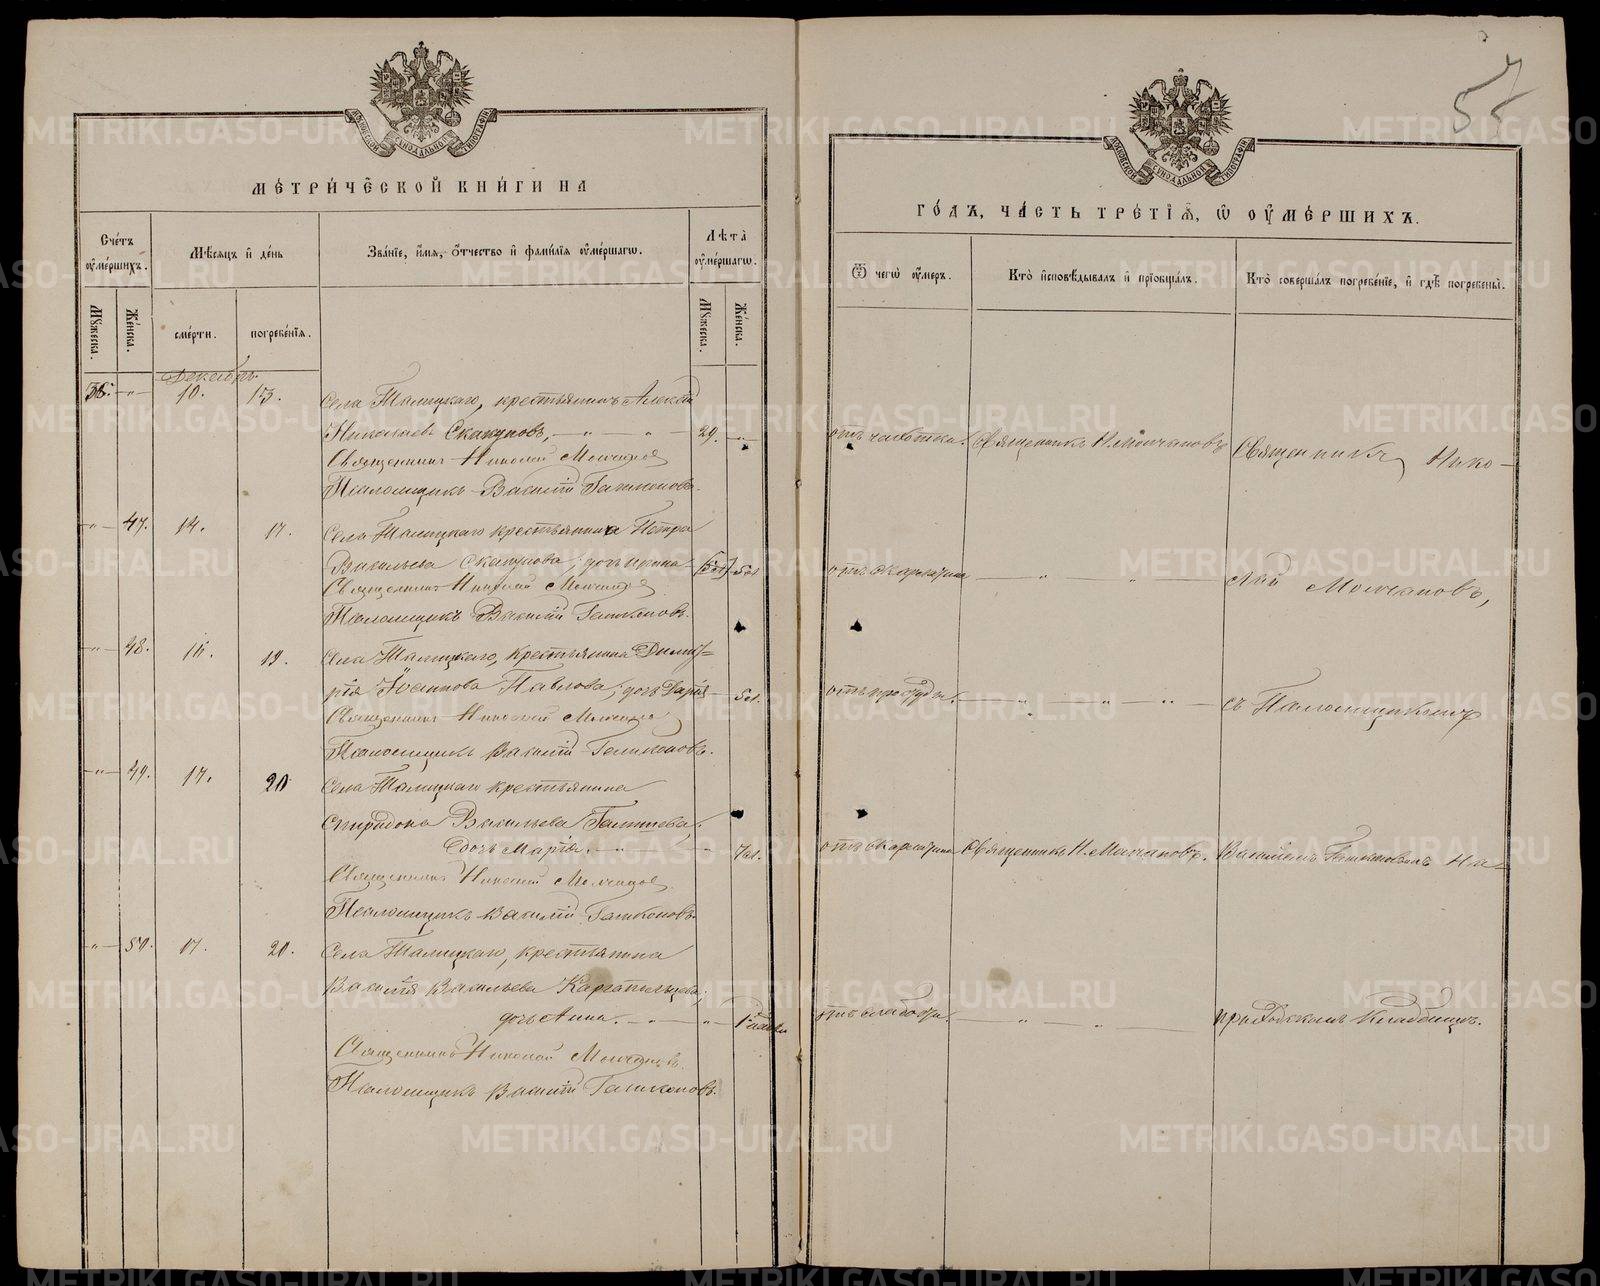 57
МОСКОВСКОЙ СѴНОДАЛЬНОЙ ТИПОГРАФІИ
МЕТРИЧЕСКОЙ КНИГИ НА
Счетъ оумершихъ.
Мѣсяцъ и день
Званіе, имя, отчество и фамилія оумершагѡ.
Лѣта оумершагѡ.
Мꙋжеска.
Женска.
смерти.
погребенія.
Мꙋжеска.
Женска.
Декабрь
38. — " — 10. 13. Села Талицкаго, крестьянинъ Алексѣй
Николаевъ Скакуновъ, — " — " — 29. "
Священникъ Николай Молчановъ
Псаломщикъ Василій Гашконовъ.
" 47. 14. 17. Села Талицкаго крестьянина Петра
Васильева Скакунова, дочь Ирина 5 л.
Священникъ Николай Молчановъ
Псаломщикъ Василій Гашконовъ.
" 48. 19. Села Талицкаго, крестьянина Димит=
рія Іоаннова Павлова, дочь Дарія 5 л.
Священникъ Николай Молчановъ
Псаломщикъ Василій Гашконовъ.
" 49. 17. 20 Села Талицкаго крестьянина
Спиридона Васильева Галишева,
дочь Марія. — " 7 л.
Священникъ Николай Молчановъ
Псаломщикъ Василій Гашконовъ
" 50. 17. 20. Села Талицкаго, крестьянина
Василія Васильева Каргапольцева;
дочь Анна. — " — "
Священникъ Николай Молчановъ.
Псаломщикъ Василій Гашконовъ.
МОСКОВСКОЙ СѴНОДАЛЬНОЙ ТИПОГРАФІИ
ГОДЪ, ЧАСТЬ ТРЕТІЯ, Ѡ ОУМЕРШИХЪ.
Ѿ чегѡ оумеръ.
Кто исповѣдывалъ и пріобщалъ.
Кто совершалъ погребеніе, и гдѣ погребены.
отъ чахотки. Священникъ Н. Молчановъ Священникъ Нико-
отъ скарлатины " " лай Молчановъ,
отъ простуды. " " " съ Псаломщикомъ
отъ скарлатины Священникъ Н. Молчановъ. Василіемъ Гашконовымъ на
отъ слабости. " " приходскомъ кладбищѣ.
METRIKI.GASO-URAL.RU